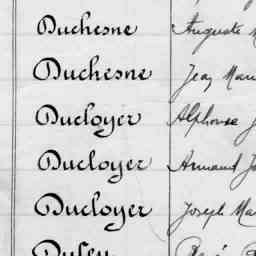 Duchesne Auguste
Duchesne Jean Mari
Ducloyer Alphonse J
Ducloyer Armand Jo
Ducloyer Joseph Ma